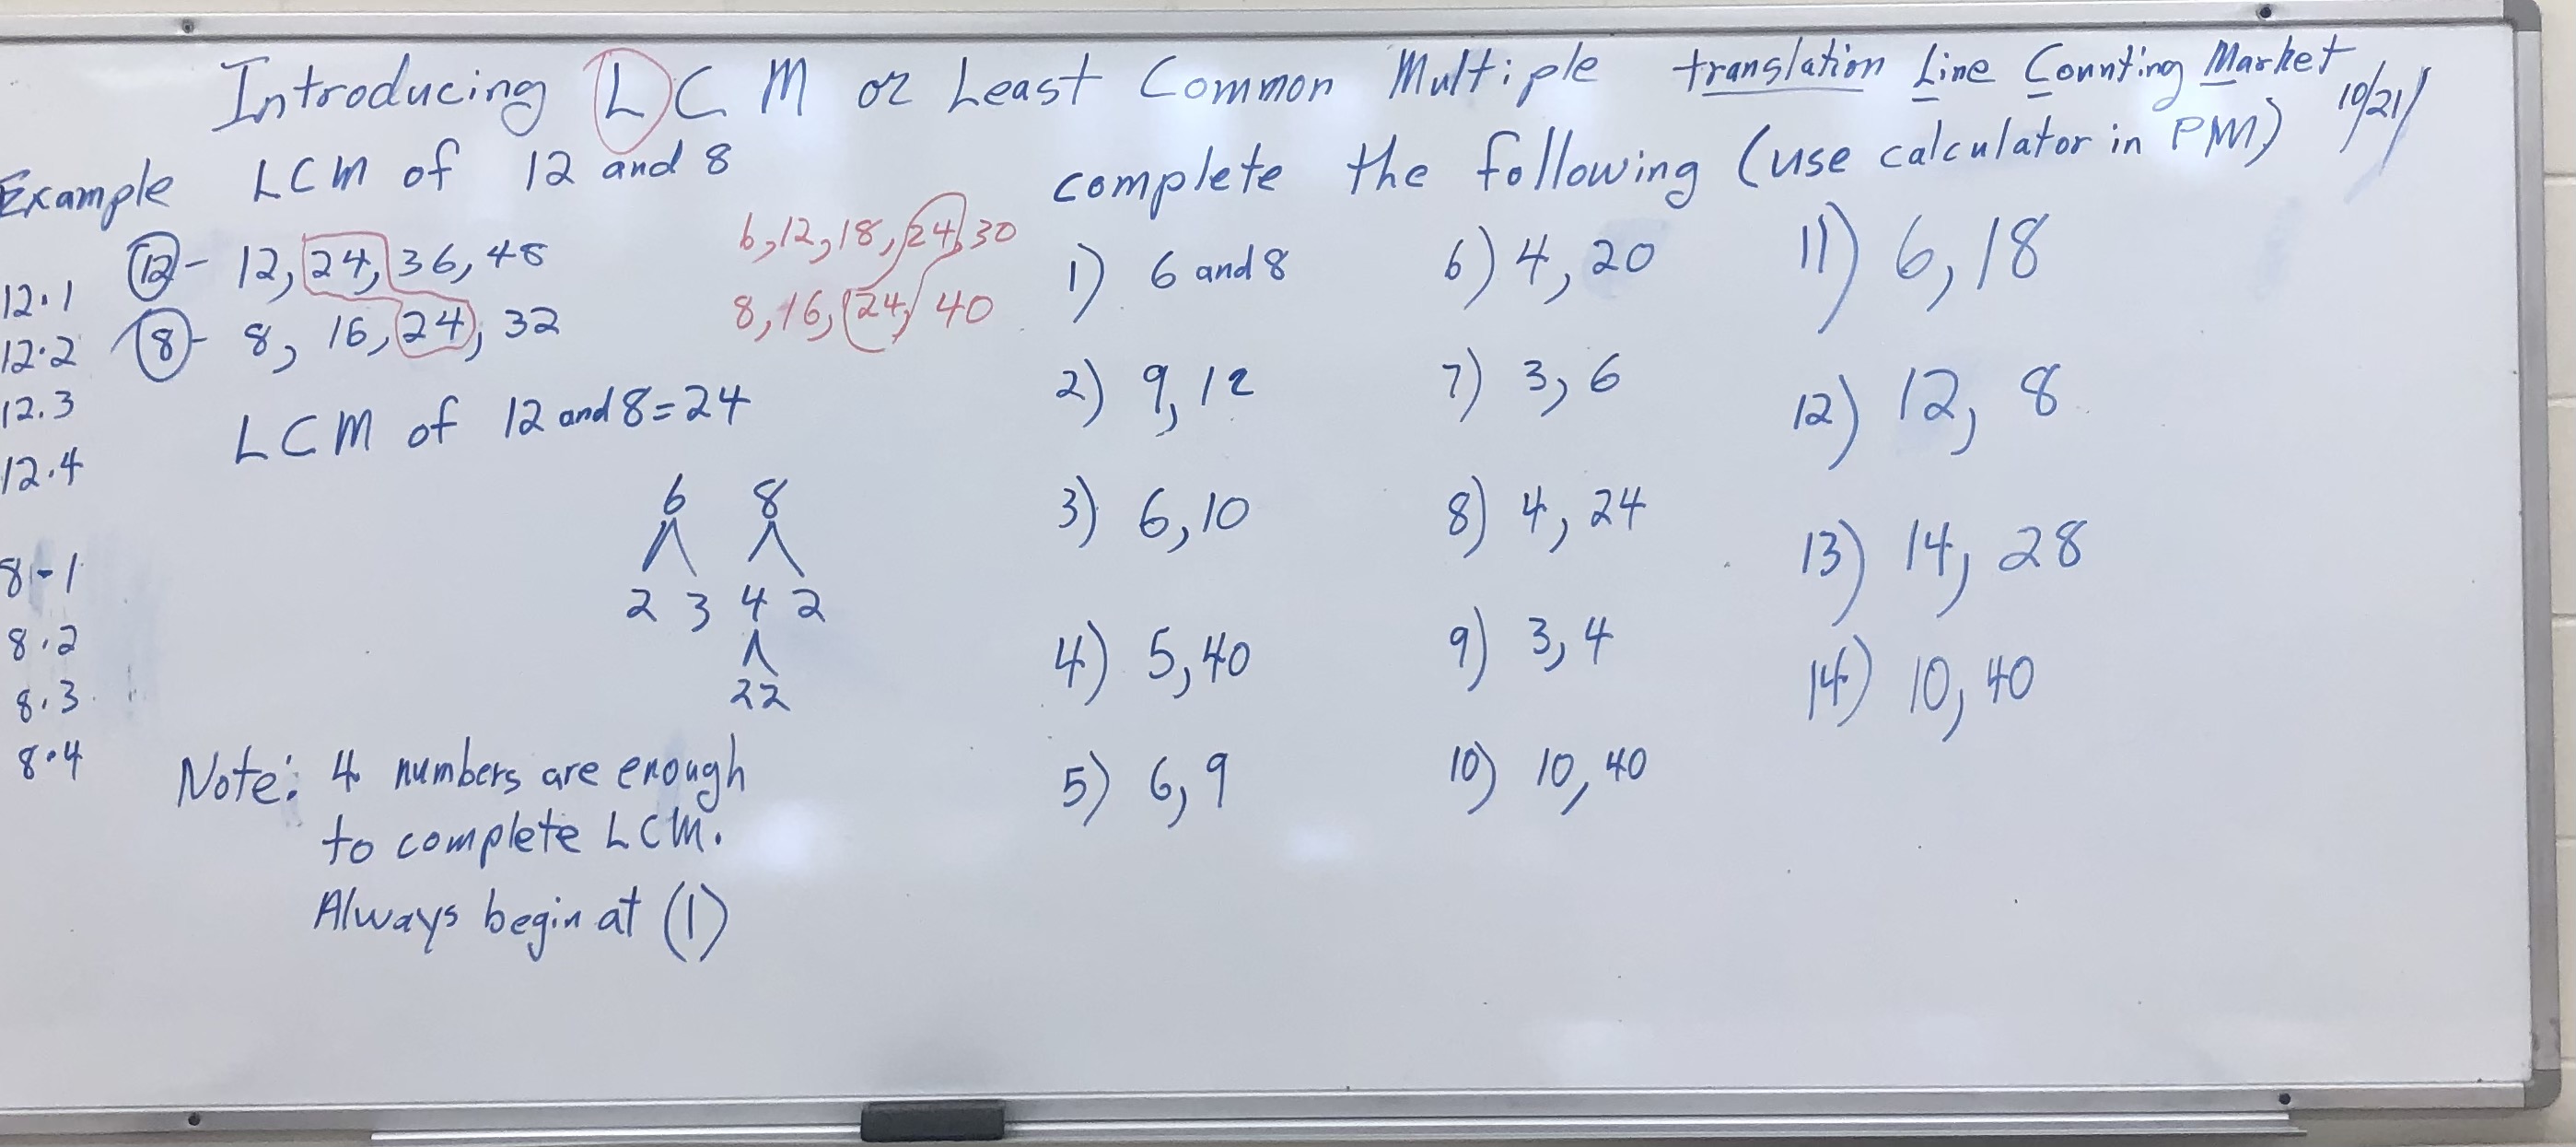 Introducing LCM or Least Common Multiple translation Line Counting Market
10/21/
Example LCM of 12 and 8
12- 12, 24, 36, 48
8- 8, 16, 24, 32
12.1
12.2
12.3
12.4
8-1
8.2
8.3
8.4
LCM of 12 and 8=24
6,12,18,24,30
8,16,24, 40
6 8
2 3 4 2
22
Note: 4 numbers are enough
to complete LCM.
Always begin at (1)
complete the following (use calculator in PM)
1) 6 and 8
2) 9, 12
3) 6, 10
4) 5, 40
5) 6, 9
6) 4, 20
7) 3, 6
8) 4, 24
9) 3, 4
10) 10, 40
11) 6, 18
12) 12, 8
13) 14, 28
14) 10, 40